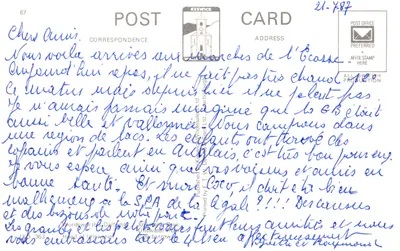 67
POST CARD
21-7-87
CORRESPONDENCE
ADDRESS
POST OFFICE PREFERRED
AFFIX STAMP HERE
Chers Amis.
Nous voila arrivés aux marches de l'Ecosse
Aujourd'hui repos, il ne fait pas très chaud 12°
Ce matin mais depuis hier il ne pleut pas.
Je n'aurais jamais imaginé que la GB était
aussi belle et vallonnée. Nous campons dans
une region de lacs. Les enfants ont trouvé des
copains et parlent en Anglais, c'est très bon pour eux
Je vous espère ainsi que vos voisins et amis en
bonne santé. Et mon Coco, il doit être bien
malheureux à la SPA de la ?!!! Des caresses
et des bisous de notre part.
Les grands et les petits vous font leurs amitiés et nous
vous embrassons tous le bien affectueusement
et Raymond